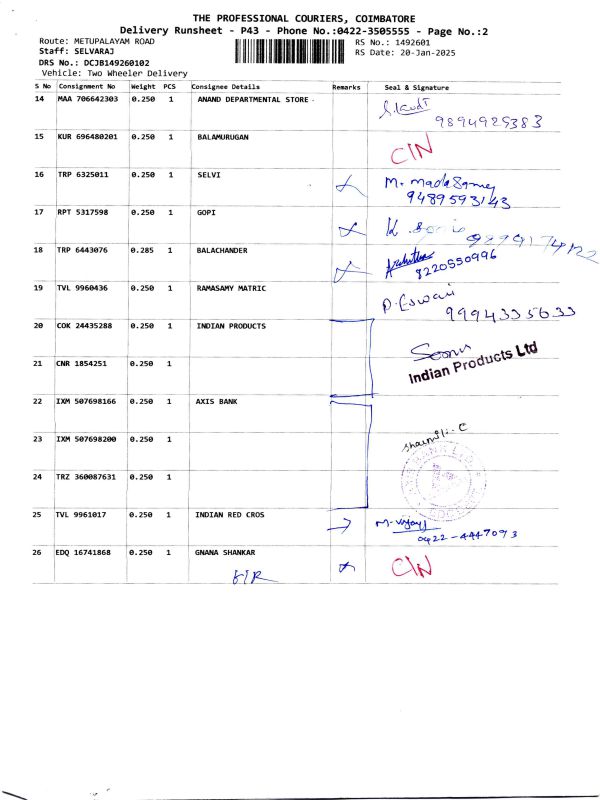 THE PROFESSIONAL COURIERS, COIMBATORE
Delivery Runsheet - P43 - Phone No.:0422-3505555 - Page No.:2
Route: METUPALAYAM ROAD RS No.: 1492601
Staff: SELVARAJ RS Date: 20-Jan-2025
DRS No.: DCJB149260102
Vehicle: Two Wheeler Delivery
S No Consignment No Weight PCS Consignee Details Remarks Seal & Signature
14 MAA 706642303 0.250 1 ANAND DEPARTMENTAL STORE
9894929383
15 KUR 696480201 0.250 1 BALAMURUGAN
CIN
16 TRP 6325011 0.250 1 SELVI
M. madasamy
9489593143
17 RPT 5317598 0.250 1 GOPI
K.
18 TRP 6443076 0.285 1 BALACHANDER
8220550996
19 TVL 9960436 0.250 1 RAMASAMY MATRIC
P. Eswari
9994335633
20 COK 24435288 0.250 1 INDIAN PRODUCTS
21 CNR 1854251 0.250 1
Indian Products Ltd
22 IXM 507698166 0.250 1 AXIS BANK
23 IXM 507698200 0.250 1
24 TRZ 360087631 0.250 1
25 TVL 9961017 0.250 1 INDIAN RED CROS
M. Vijay
0422-4447093
26 EDQ 16741868 0.250 1 GNANA SHANKAR
CIN